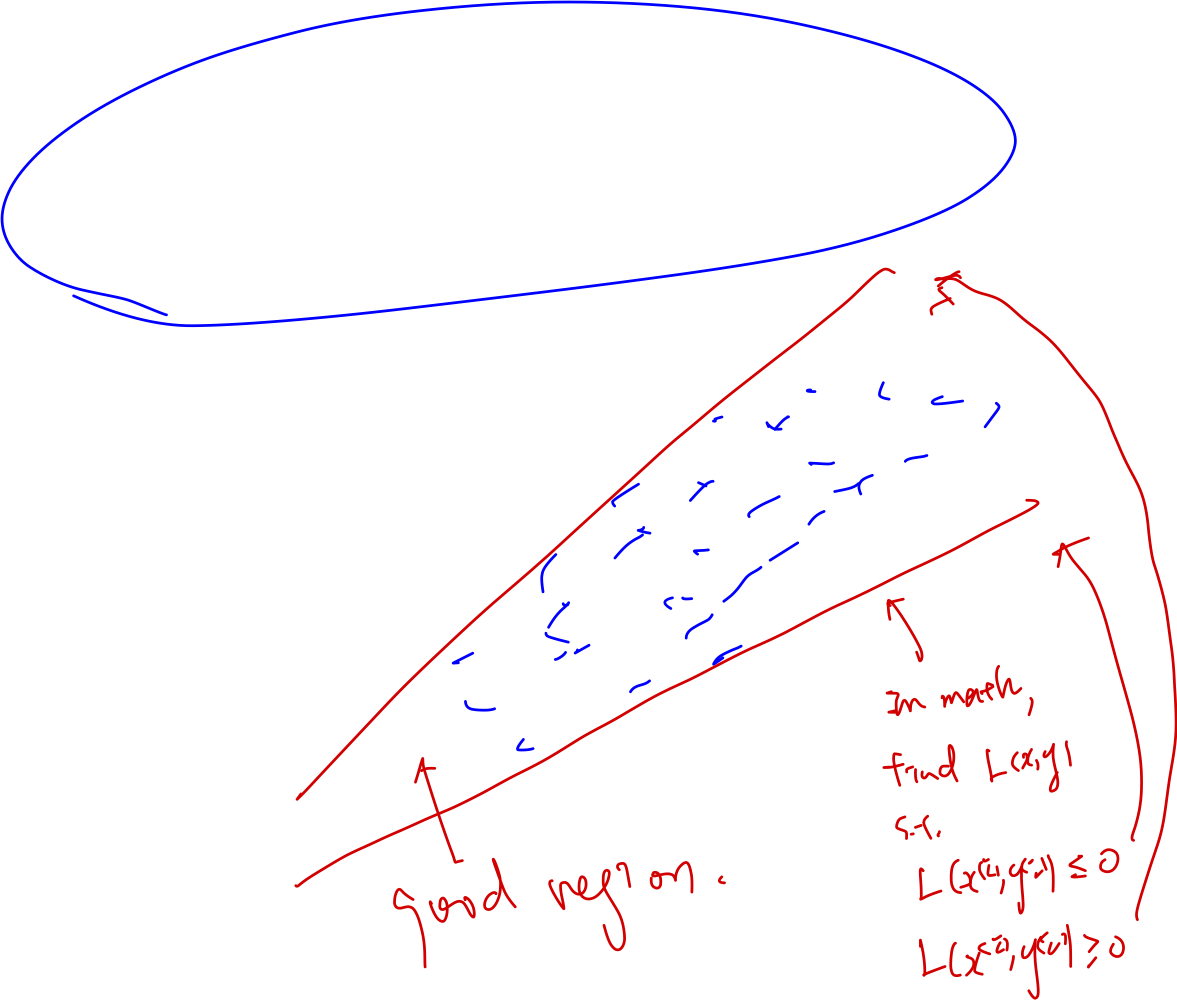 good region.
In math,
find L(x,y)
s.t.
L(x⁽ⁱ⁾,y⁽ⁱ⁾) ≤ 0
L(x⁽ⁱ⁾,y⁽ⁱ⁾) ≥ 0